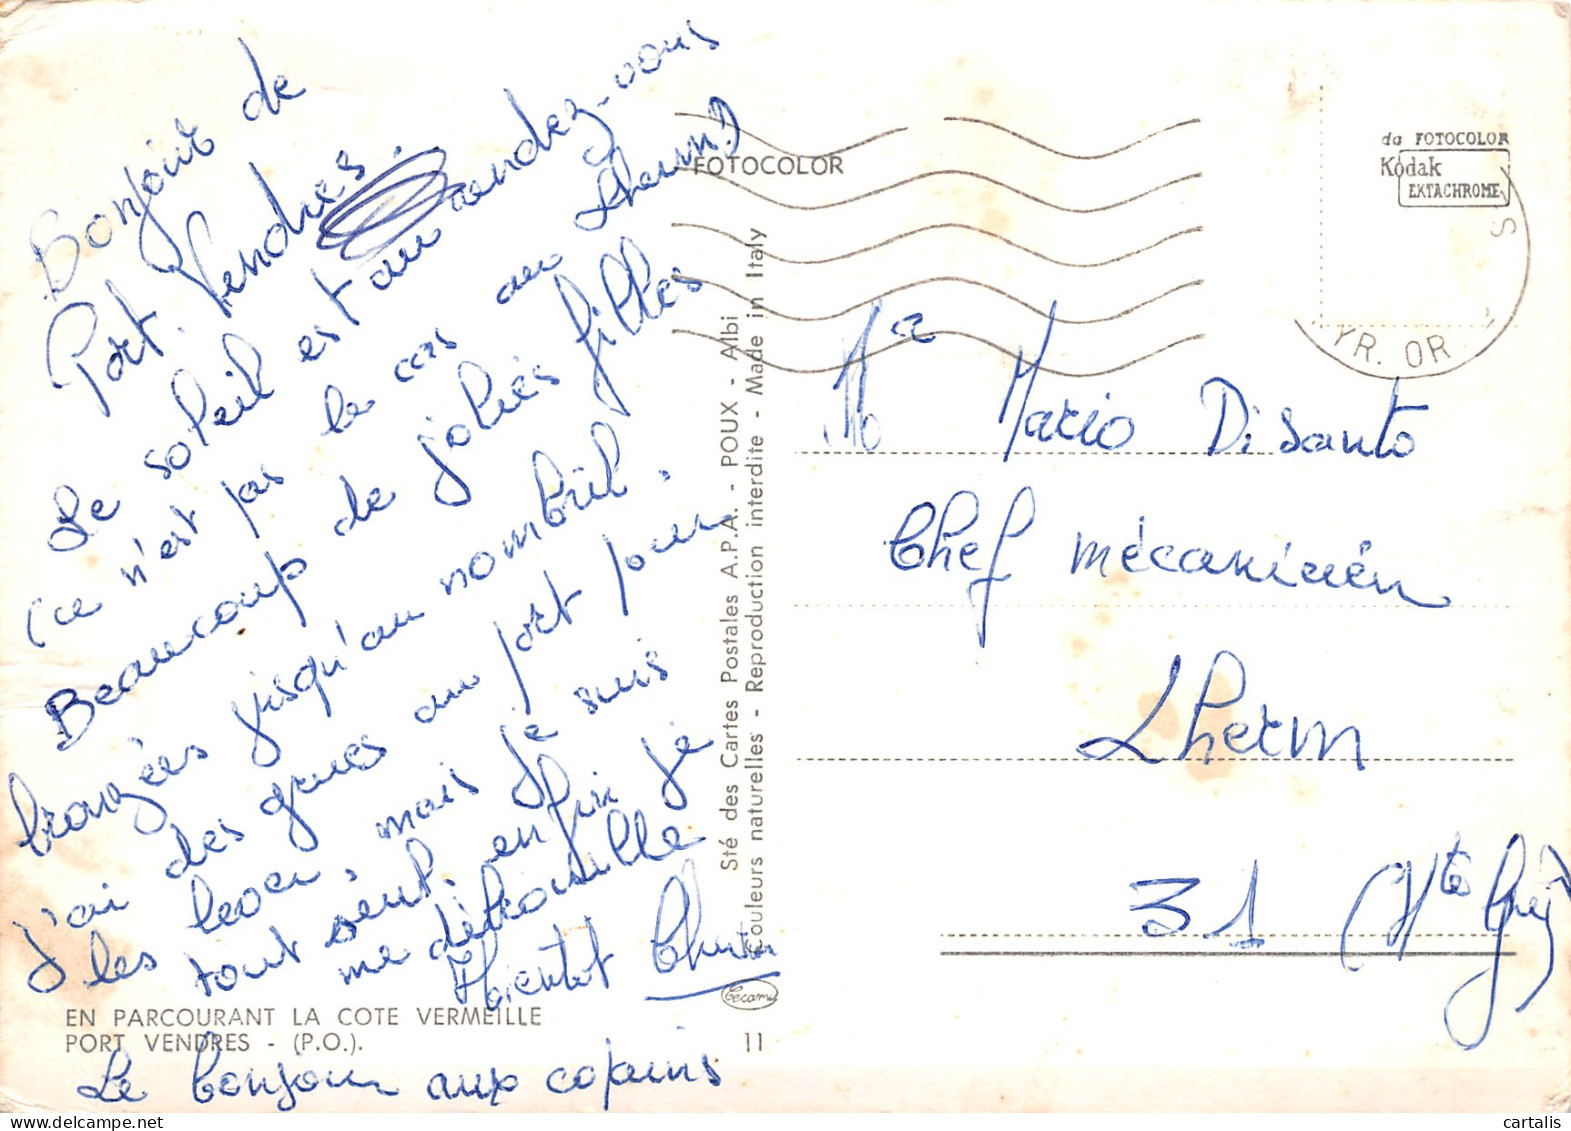 Bonjour de
Port. Vendres.
Le soleil est au rendez-vous
(ce n'est pas le cas au Lherm)
Beaucoup de jolies filles
bronzées jusqu'au nombril.
J'ai des grues au port pour
les lever, mais je suis
tout seul, enfin je
me débrouille
Abientot
Le bonjour aux copains
EN PARCOURANT LA COTE VERMEILLE
PORT VENDRES - (P.O.).
11
FOTOCOLOR
Sté des Cartes Postales A.P.A. - POUX - Albi
Couleurs naturelles - Reproduction interdite - Made in Italy
da FOTOCOLOR
Kodak
EKTACHROME
YR. OR
Mario Di Santo
Chef mécanicien
Lherm
31 (Hte Gne)
cartalis